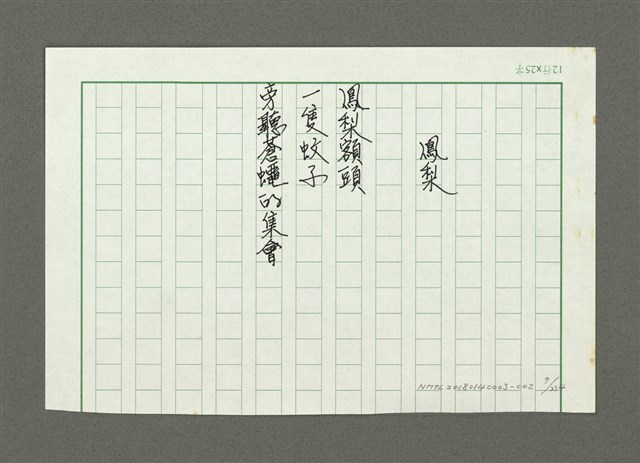 12行×25字
鳳梨
鳳梨額頭
一隻蚊子
旁聽蒼蠅的集會
NMTL20180140003-002 7/234